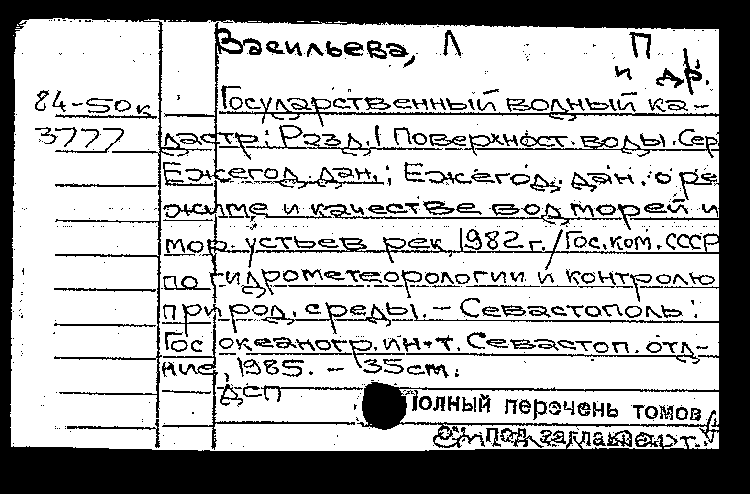 Васильева, Л П
и др.
84-50к Государственный водный ка-
3777 дастр: Разд. 1 Поверхност. воды. Сер
Ежегод. дан.; Ежегод. дан. о ре
жиме и качестве вод морей и
мор. устьев рек, 1982 г. / Гос. ком. СССР
по гидрометеорологии и контролю
природ. среды. - Севастополь:
Гос океаногр. ин-т. Севастоп. отд-
ние, 1985. - 35 см.
ДСП
Полный перечень томов
см. под заглавием т. 1